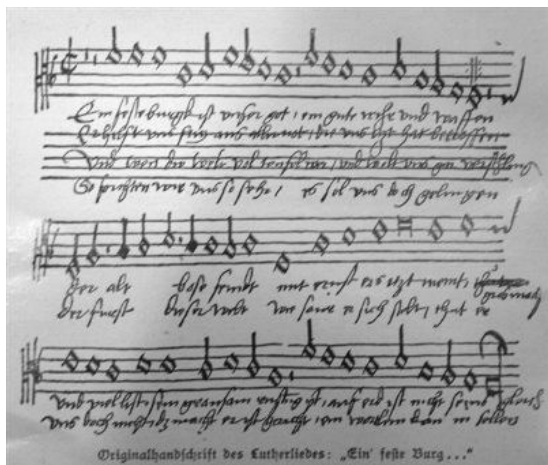 Ein feste burgk ist unser got / ein gute wehr und waffen
Er hilfft uns frey aus aller not / die uns itzt hat betroffen
Und wen die welt vol teufell wer / und wolt uns gar verschling
So furchten wir uns so sehr / es sol uns doch gelingen
der alt bose feindt mit ernst ers itzt meint
der furst dieser welt wie saur er sich stelt / thut er
und viel list sein grausam rustung ist / auf erd ist nicht seins gleich
uns doch nicht macht er ist gericht / ein wortlein kan in fellen
Originalhandschrift des Lutherliedes: „Ein' feste Burg..."